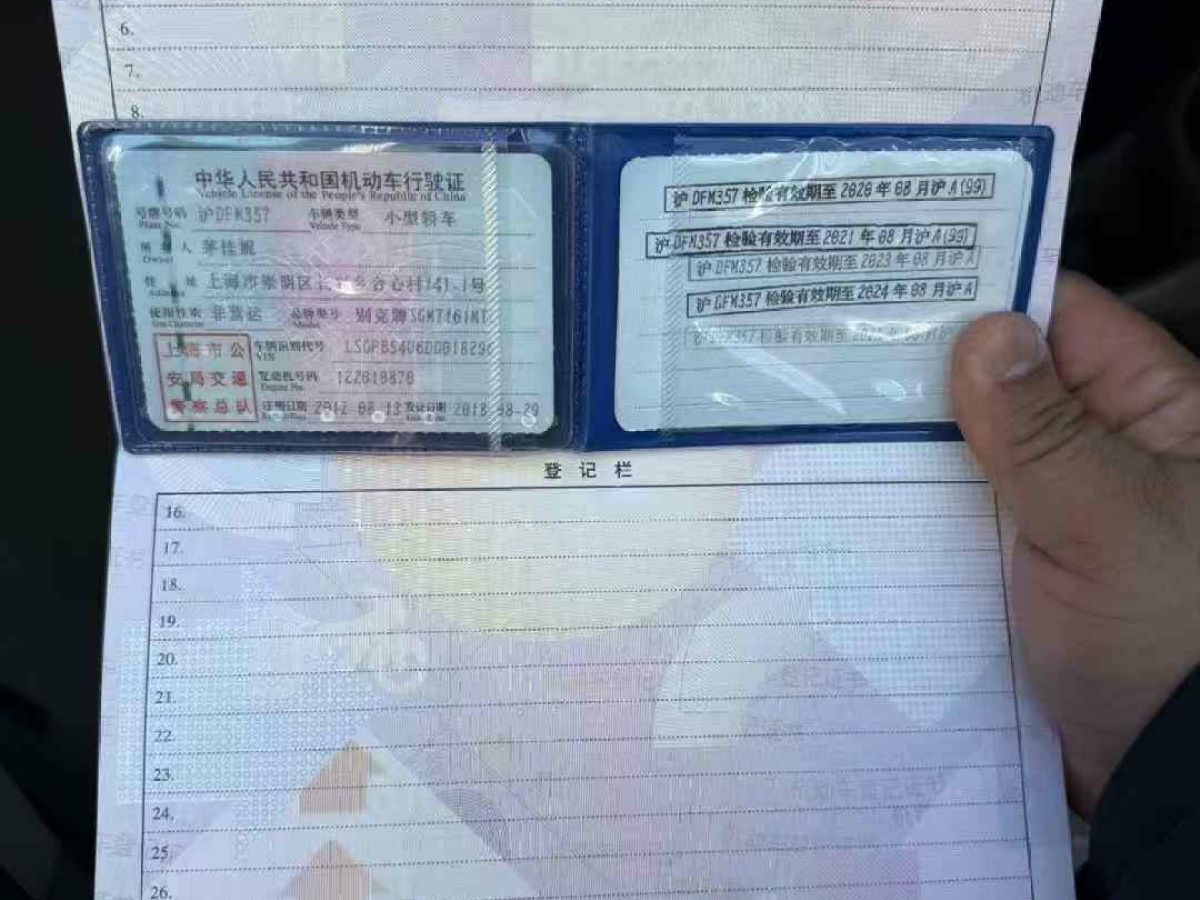 6.
7.
8.
中华人民共和国机动车行驶证
Vehicle License of the People's Republic of China
号牌号码 沪DFM357 车辆类型 小型轿车
Plate No. Vehicle Type
所有人
Owner
住址 上海市崇明区 乡合心村141 1号
Address
使用性质 非营运 品牌型号 别克牌SGM7161MT
Use Character Model
上海市公 车辆识别代号
VIN
安局交通 发动机号码 122010870
Engine No.
警察总队 注册日期 发证日期 2018-08-20
沪DFM357 检验有效期至2020年08月沪A(99)
沪DFM357 检验有效期至2021年08月沪A(99)
沪DFM357 检验有效期至2023年08月沪A
沪DFM357 检验有效期至2024年08月沪A
沪DFM357 检验有效期至
登记栏
16.
17.
18.
19.
20.
21.
22.
23.
24.
25.
26.